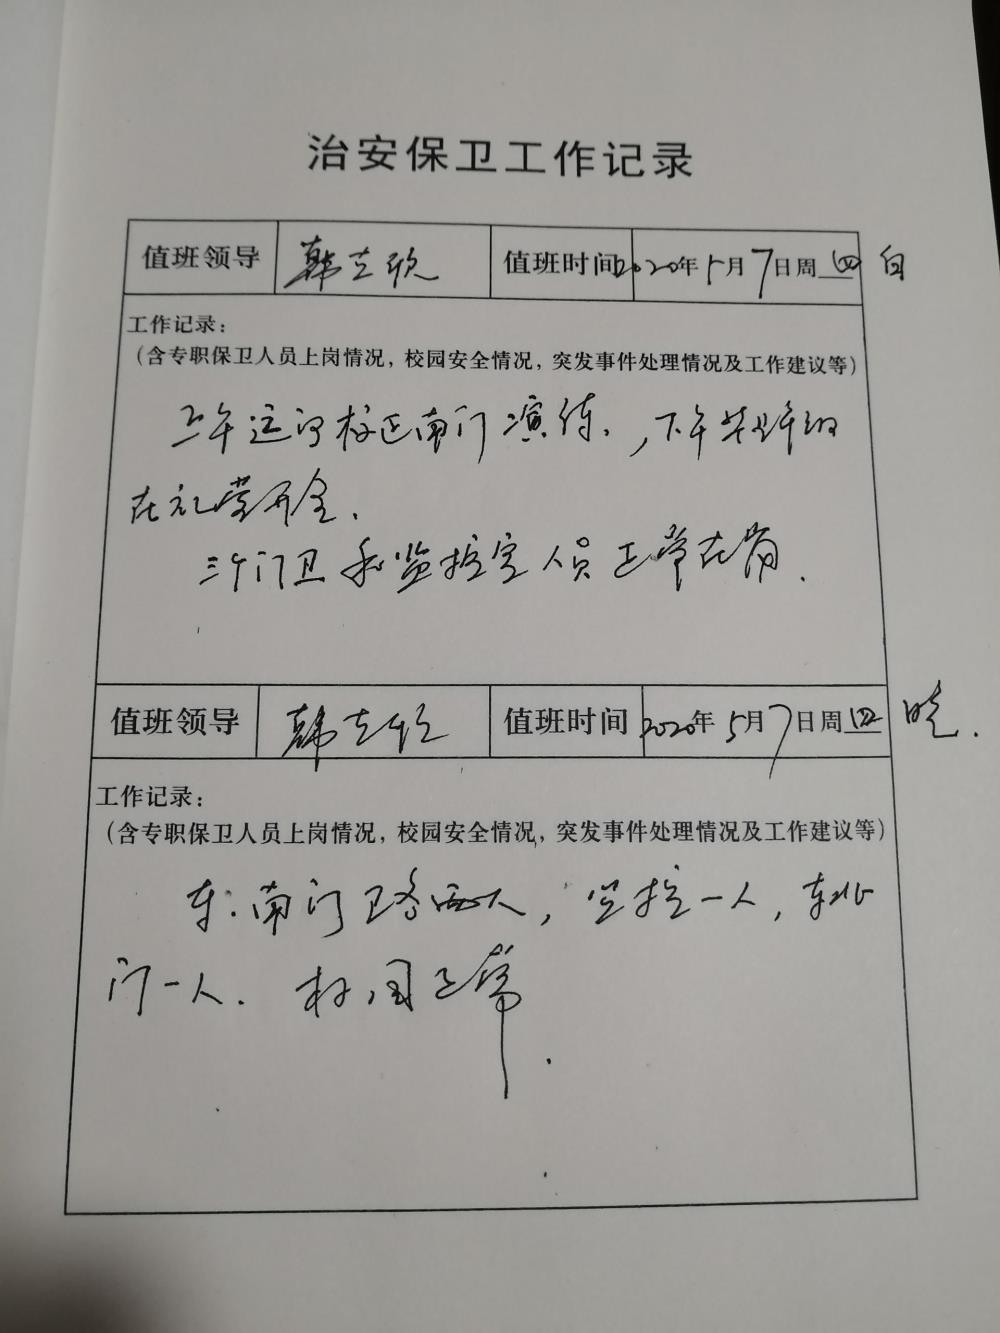 治安保卫工作记录
值班领导 韩立欣 值班时间 2020年5月7日周四 白
工作记录：
（含专职保卫人员上岗情况，校园安全情况，突发事件处理情况及工作建议等）
上午运河校区南门演练，下午
在礼堂开会.
三个门卫和监控室人员正常在岗.
值班领导 韩立欣 值班时间 2020年5月7日周四 晚.
工作记录：
（含专职保卫人员上岗情况，校园安全情况，突发事件处理情况及工作建议等）
东.南门卫各两人，监控一人，东北
门一人. 校园正常.